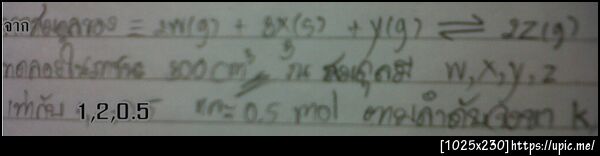 จากสมดุลของ = 2W(g) + 3X(s) + y(g) ⇌ 2Z(g)
ทดลองในภาชนะ 800 cm³ ณ สมดุลมี W, X, y, z
เท่ากับ 1,2,0.5 และ 0.5 mol ตามลำดับ จงหา K
[1025x230] https://upic.me/